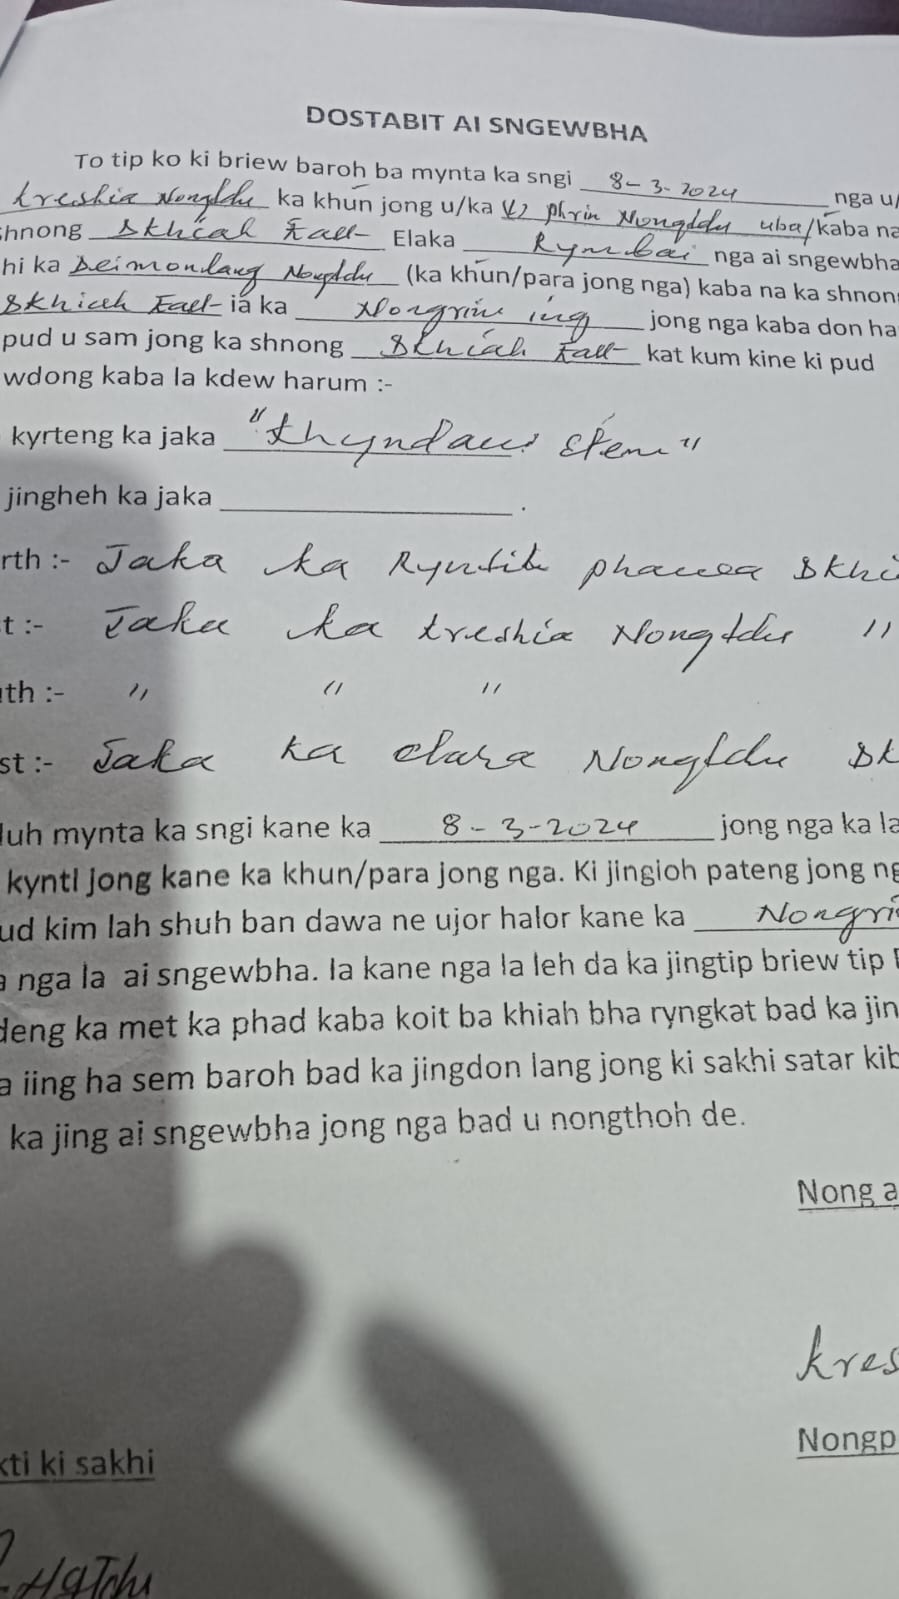 DOSTABIT AI SNGEWBHA
To tip ko ki briew baroh ba mynta ka sngi 8-3-2024 nga u/
kreshia Nongtdu ka khun jong u/ka (L) phrin Nongtdu uba/kaba na
hnong Skhiah East Elaka Rymbai nga ai sngewbha
hi ka Deimonlang Nongtdu (ka khun/para jong nga) kaba na ka shnon
Skhiah East ia ka Nongrim iing jong nga kaba don ha
pud u sam jong ka shnong Skhiah East kat kum kine ki pud
wdong kaba la kdew harum :-
kyrteng ka jaka "khyndaw Stem"
jingheh ka jaka .
rth :- Jaka ka Ryntih Skhi
t :- Jaka ka kreshia Nongtdu "
th :- " " "
st :- Jaka ka clara Nongtdu Sk
luh mynta ka sngi kane ka 8-3-2024 jong nga ka la
kynti jong kane ka khun/para jong nga. Ki jingioh pateng jong ng
ud kim lah shuh ban dawa ne ujor halor kane ka Nongri
a nga la ai sngewbha. Ia kane nga la leh da ka jingtip briew tip
deng ka met ka phad kaba koit ba khiah bha ryngkat bad ka jin
a iing ha sem baroh bad ka jingdon lang jong ki sakhi satar kib
ka jing ai sngewbha jong nga bad u nongthoh de.
Nong a
kres
Nongp
kti ki sakhi